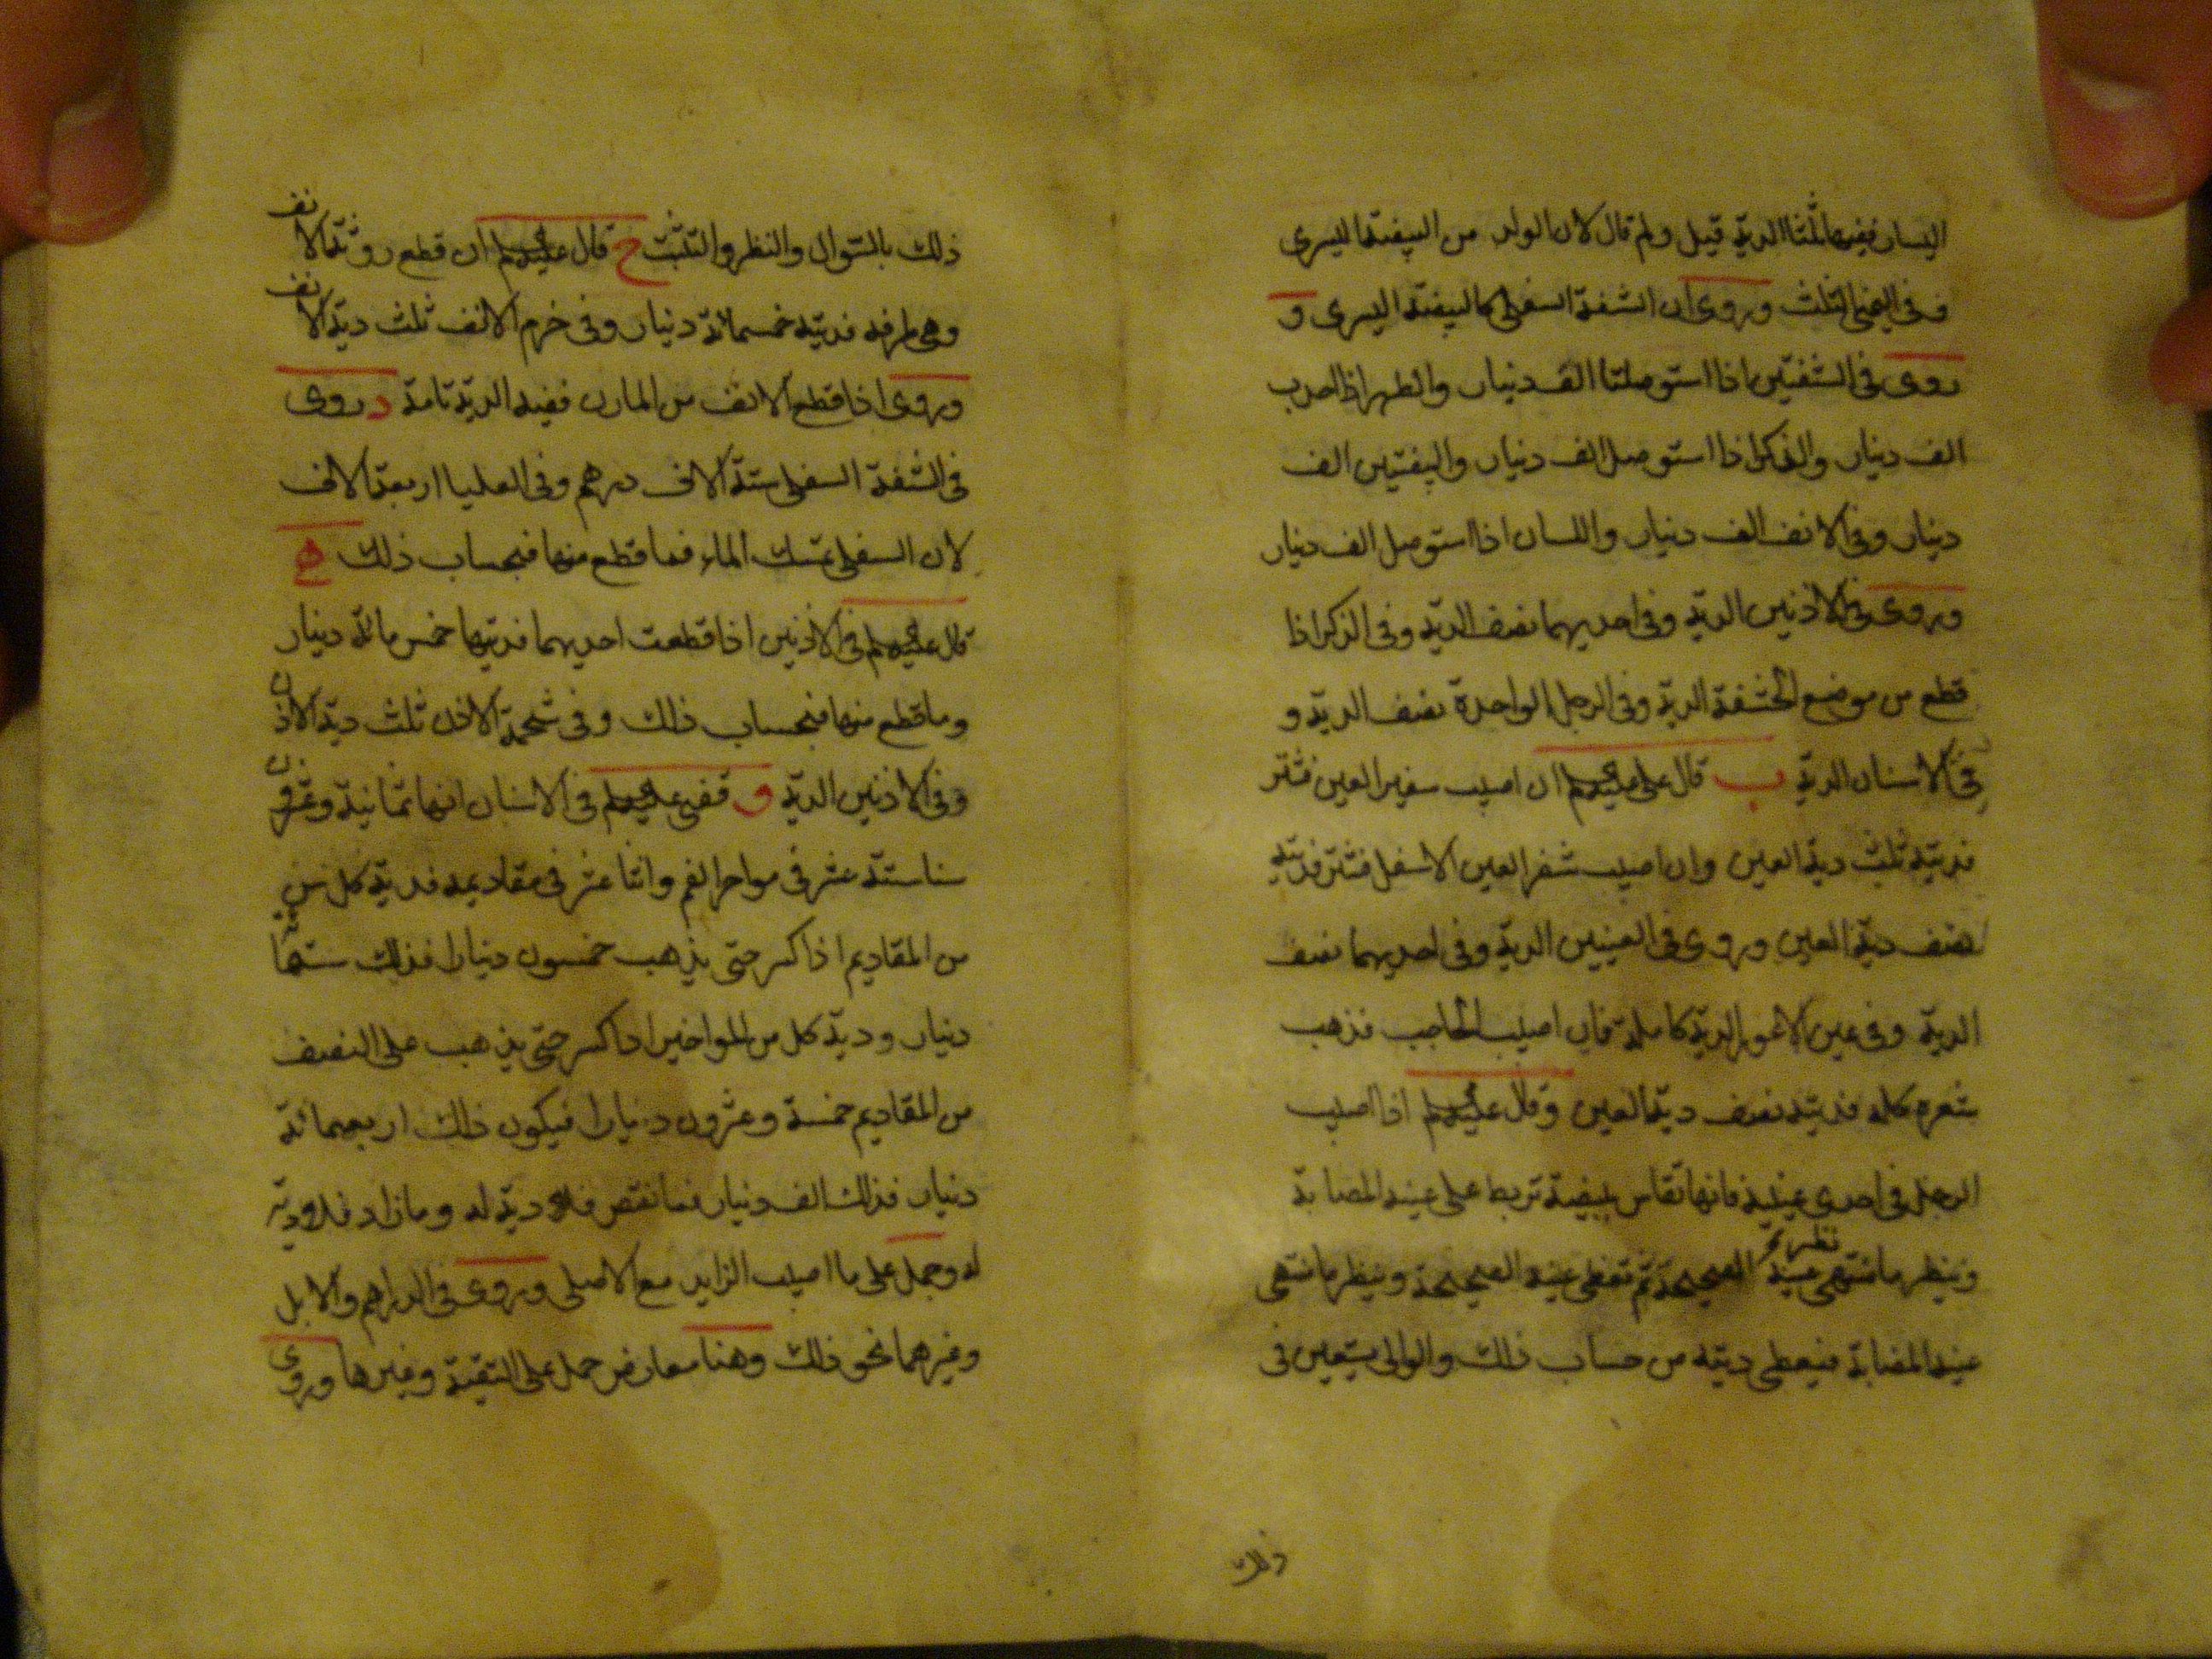 اليسار ففيها ثلثا الدية قيل ولم قال لان الولد من البيضة اليسرى
وفى اليمنى الثلث وروى ان الشفة السفلى كالبيضة اليسرى و
روى فى الشفتين اذا استوصلتا الف دينار والظهر اذا احدب
الف دينار والذكر اذا استوصل الف دينار والبيضتين الف
دينار وفى الانف الف دينار واللسان اذا استوصل الف دينار
وروى فى الاذنين الدية وفى احديهما نصف الدية وفى الذكر اذا
قطع من موضع الحشفة الدية وفى الرجل الواحدة نصف الدية و
فى الاسنان الدية ب قال على ان اصيب شفير العين فشتر
فديته ثلث دية العين وان اصيب شفر العين الاسفل فشتر فديته
نصف دية العين وروى فى العينين الدية وفى احديهما نصف
الدية وفى عين الاعور الدية كاملة فان اصيب الحاجب فذهب
شعره كله فديته نصف دية العين وقال اذا اصيب
الرجل فى احدى عينيه فانها تقاس ببيضة تربط على عينه المصابة
وينظر ما منتهى نظر عينه الصحيحة ثم تغطى عينه الصحيحة وينظر ما منتهى
عينه المصابة فيعطى ديته من حساب ذلك والوالى يستعين فى
ذلك
ذلك بالسؤال والنظر والتثبت ح قال ان قطع روثة الانف
وهى طرفه فديته خمسمائة دينار وفى خرم الانف ثلث دية الانف
وروى اذا قطع الانف من المارن ففيه الدية تامة د روى
فى الشفة السفلى ستة الاف درهم وفى العليا اربعة الاف
لان السفلى تمسك الماء فما قطع منها فبحساب ذلك ه
قال فى الاذنين اذا قطعت احديهما فديتها خمس مائة دينار
وما قطع منها فبحساب ذلك وفى شحمة الاذن ثلث دية الاذن
وفى الاذنين الدية و قضى فى الاسنان انها ثمانية وعشرون
سنا ستة عشر فى مواخر الفم واثنا عشر فى مقاديمه فدية كل سن
من المقاديم اذا كسر حتى يذهب خمسون دينارا فذلك ستمائة
دينار ودية كل من المواخير اذا كسر حتى يذهب على النصف
من المقاديم خمسة وعشرون دينارا فيكون ذلك اربعمائة
دينار فذلك الف دينار فما نقص فلا دية له وما زاد فلا دية
له وحمل على ما اصيب الزايد مع الاصلى وروى فى الدراهم والابل
وغيرهما نحو ذلك وهنا معارض حمل على التقية وغيرها وروى